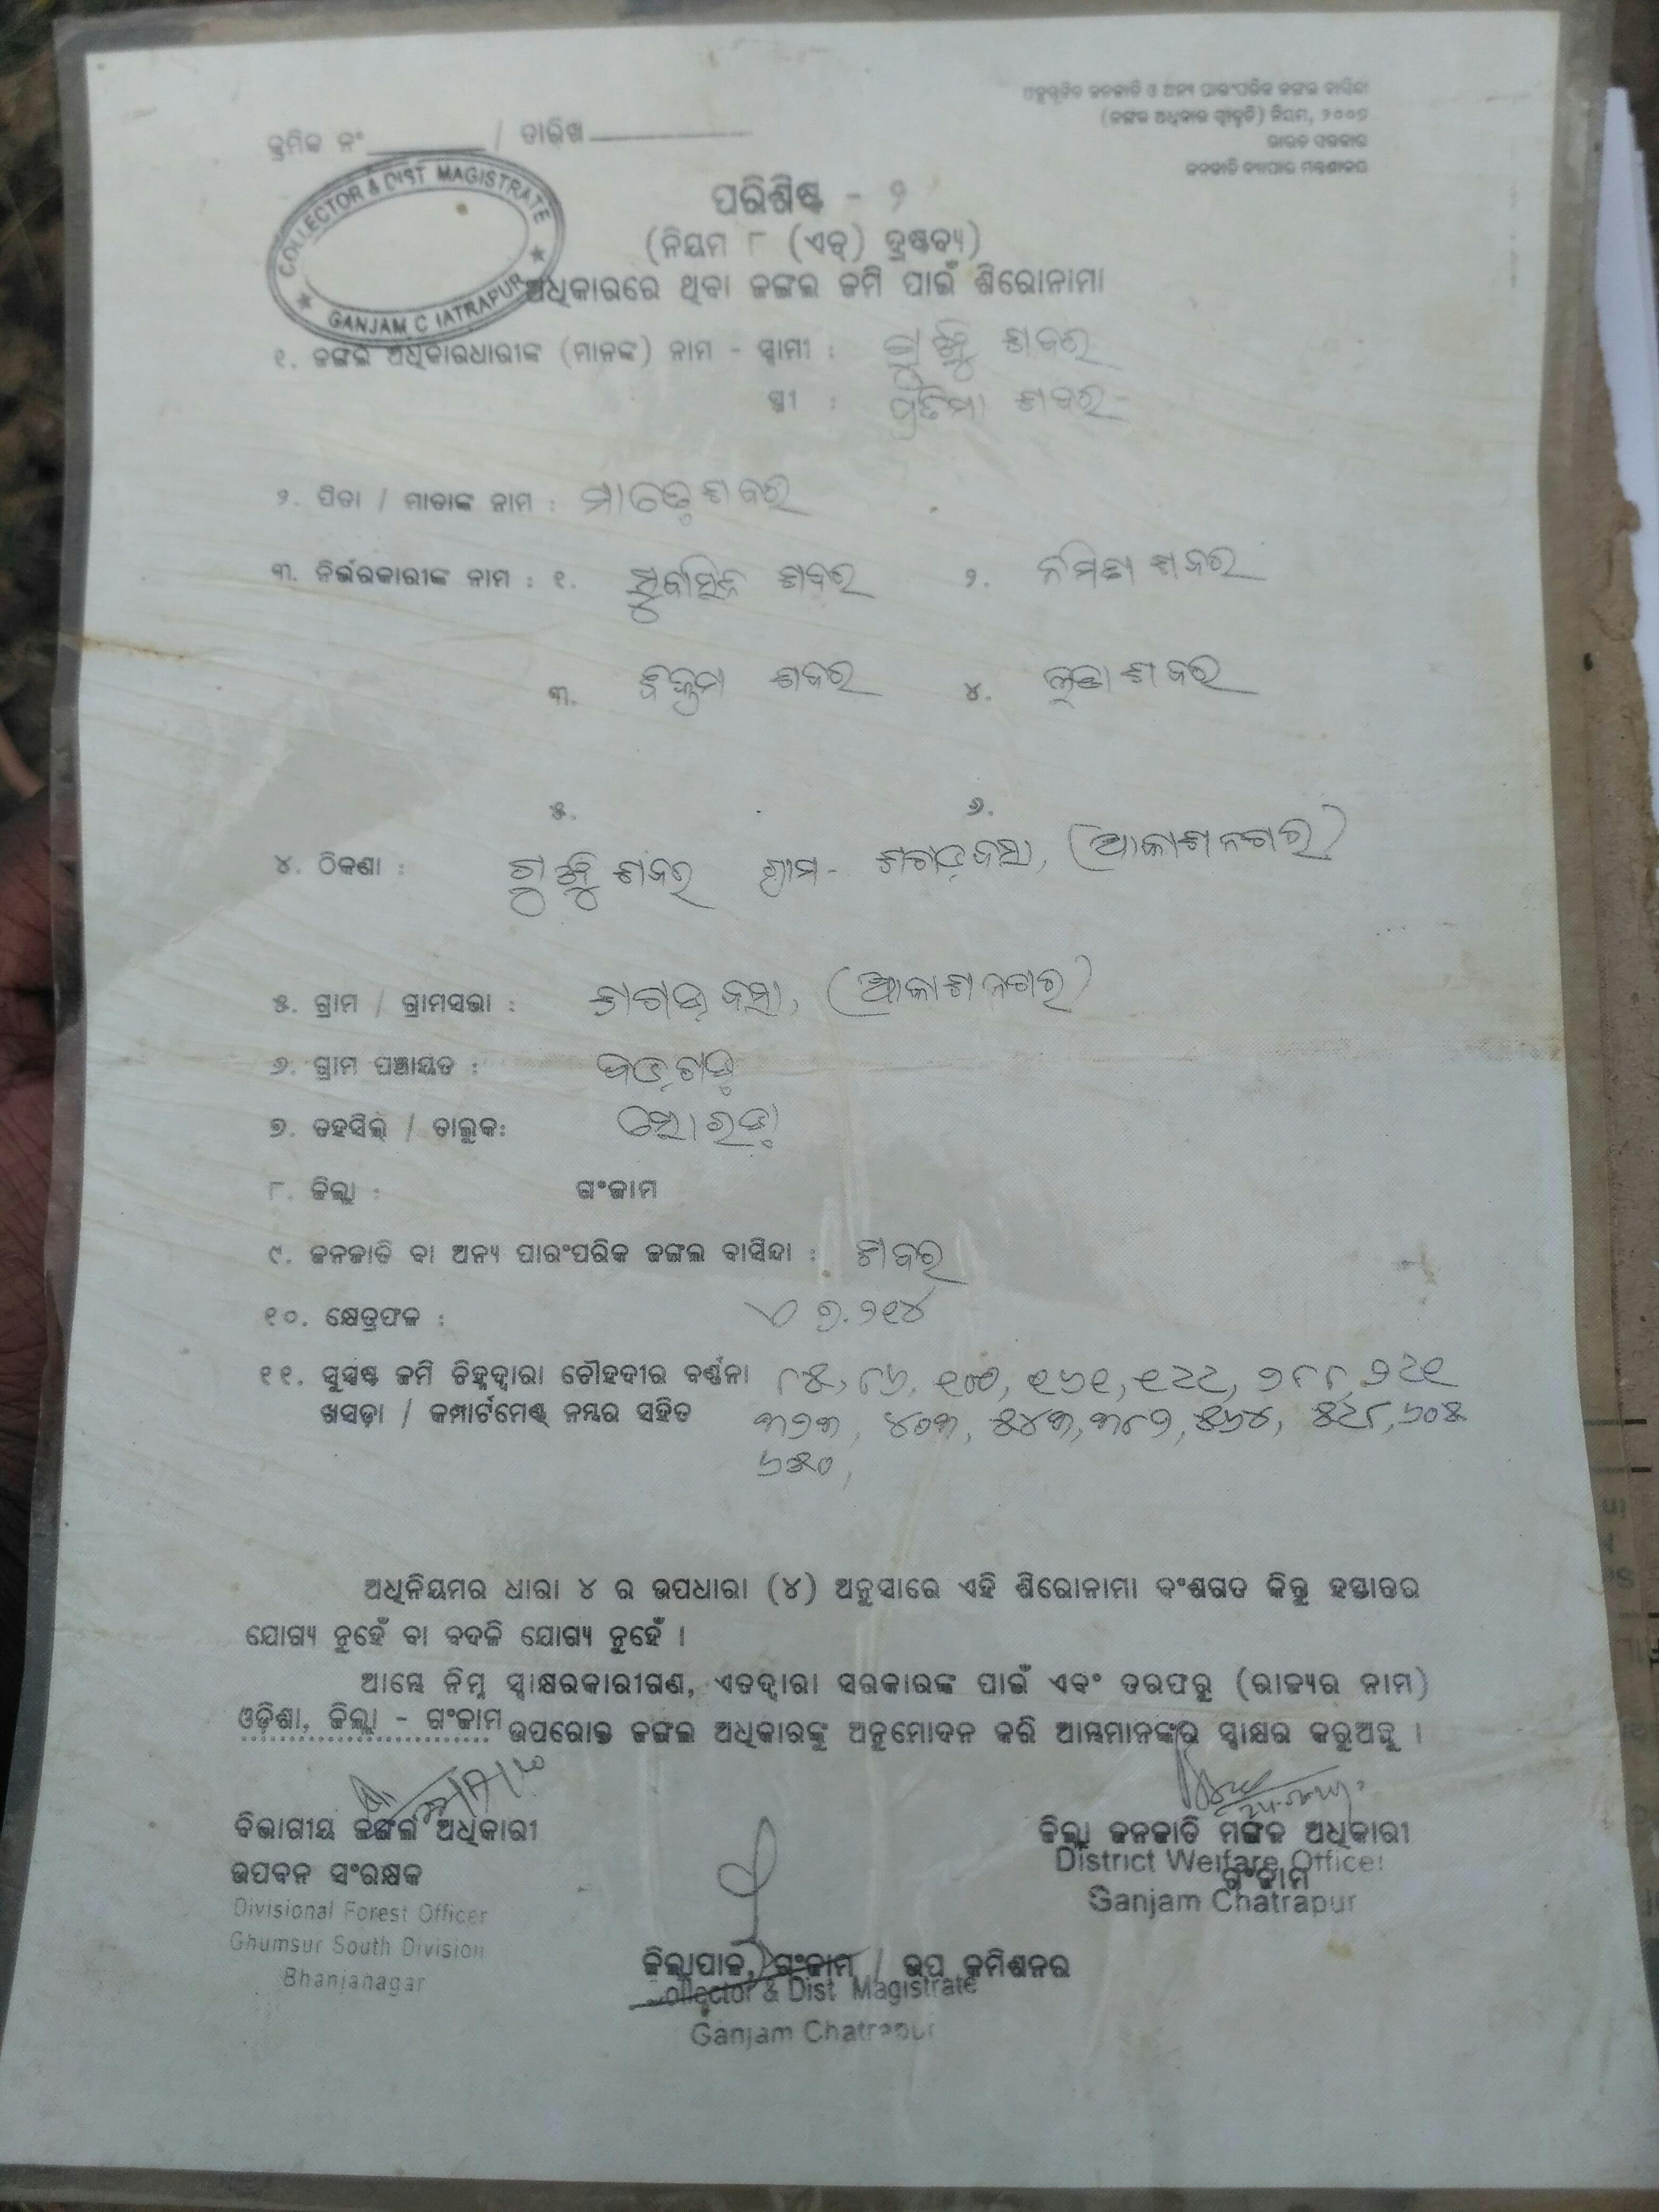 ଅନୁସୂଚିତ ଜନଜାତି ଓ ଅନ୍ୟ ପାରଂପରିକ ଜଙ୍ଗଲ ବାସିନ୍ଦା
(ଜଙ୍ଗଲ ଅଧିକାର ସ୍ୱୀକୃତି) ନିୟମ, ୨୦୦୭
ଭାରତ ସରକାର
ଜନଜାତି ବ୍ୟାପାର ମନ୍ତ୍ରଣାଳୟ
କ୍ରମିକ ନଂ ________ / ତାରିଖ ___________
COLLECTOR & DIST MAGISTRATE
GANJAM C IATRAPUR
ପରିଶିଷ୍ଟ - ୨
(ନିୟମ ୮ (ଏଚ୍) ଦ୍ରଷ୍ଟବ୍ୟ)
ଅଧିକାରରେ ଥିବା ଜଙ୍ଗଲ ଜମି ପାଇଁ ଶିରୋନାମା
୧. ଜଙ୍ଗଲ ଅଧିକାରଧାରୀଙ୍କ (ମାନଙ୍କ) ନାମ - ସ୍ୱାମୀ : ଶବର
ସ୍ତ୍ରୀ : ପ୍ରତିମା ଶବର
୨. ପିତା / ମାତାଙ୍କ ନାମ : ଶବର
୩. ନିର୍ଭରକାରୀଙ୍କ ନାମ : ୧. ଶବର ୨. ଶବର
୩. ଶବର ୪. ଶବର
୫. ୬.
୪. ଠିକଣା : ଶବର ଗ୍ରାମ- ଶଗଡ଼ବସା, (ଆକାଶନଗର)
୫. ଗ୍ରାମ / ଗ୍ରାମସଭା : ଶଗଡ଼ବସା, (ଆକାଶନଗର)
୬. ଗ୍ରାମ ପଞ୍ଚାୟତ : ବଡ଼ଗଡ଼
୭. ତହସିଲ୍ / ତାଲୁକ: ସୋରଡ଼ା
୮. ଜିଲ୍ଲା : ଗଂଜାମ
୯. ଜନଜାତି ବା ଅନ୍ୟ ପାରଂପରିକ ଜଙ୍ଗଲ ବାସିନ୍ଦା : ଶବର
୧୦. କ୍ଷେତ୍ରଫଳ : ୭.୨୧୪
୧୧. ସୁସ୍ପଷ୍ଟ ଜମି ଚିହ୍ନଦ୍ୱାରା ଚୌହଦୀର ବର୍ଣ୍ଣନା ୮୫, ୮୬, ୧୬୧, ୧୨୨, ୨୮୮, ୨୨୧
ଖସଡ଼ା / କମ୍ପାର୍ଟମେଣ୍ଟ୍ ନମ୍ବର ସହିତ ୩୨୩, ୪୦୩, ୫୪୩, ୩୮୨, ୫୬୪, ୫୨୮, ୬୦୫
୬୫୦,
ଅଧିନିୟମର ଧାରା ୪ ର ଉପଧାରା (୪) ଅନୁସାରେ ଏହି ଶିରୋନାମା ବଂଶଗତ କିନ୍ତୁ ହସ୍ତାନ୍ତର
ଯୋଗ୍ୟ ନୁହେଁ ବା ବଦଳି ଯୋଗ୍ୟ ନୁହେଁ ।
ଆମ୍ଭେ ନିମ୍ନ ସ୍ୱାକ୍ଷରକାରୀଗଣ, ଏତଦ୍ୱାରା ସରକାରଙ୍କ ପାଇଁ ଏବଂ ତରଫରୁ (ରାଜ୍ୟର ନାମ)
ଓଡ଼ିଶା, ଜିଲ୍ଲା - ଗଂଜାମ ଉପରୋକ୍ତ ଜଙ୍ଗଲ ଅଧିକାରଙ୍କୁ ଅନୁମୋଦନ କରି ଆମ୍ଭମାନଙ୍କର ସ୍ୱାକ୍ଷର କରୁଅଛୁ ।
ବିଭାଗୀୟ ଜଙ୍ଗଲ ଅଧିକାରୀ
ଉପବନ ସଂରକ୍ଷକ
Divisional Forest Officer
Ghumsur South Division
Bhanjanagar
ଜିଲ୍ଲା ଜନଜାତି ମଙ୍ଗଳ ଅଧିକାରୀ
District Welfare Officer
ଗଂଜାମ
Ganjam Chatrapur
ଜିଲ୍ଲାପାଳ, ଗଂଜାମ / ଉପ କମିଶନର
Collector & Dist Magistrate
Ganjam Chatrapur